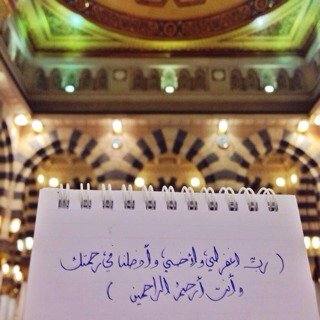 ( ربّ اغفر لي وأدخلنا في رحمتك
وأنت أرحم الراحمين )